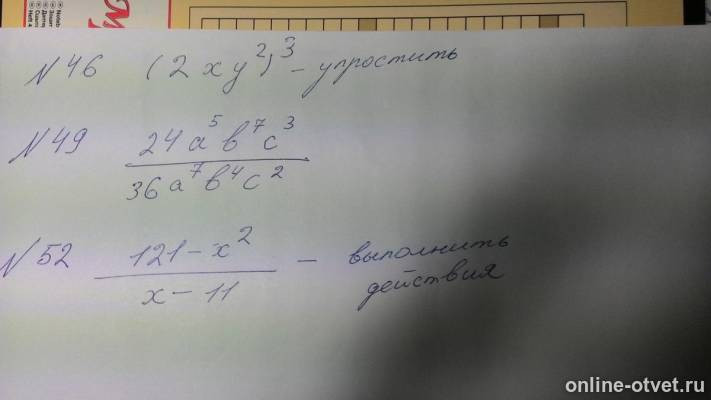 N 46 (2xy²)³ – упростить
N 49 24a⁵b⁷c³
36a⁷b⁴c²
N 52 121–x² – выполнить
x – 11 действия
online-otvet.ru